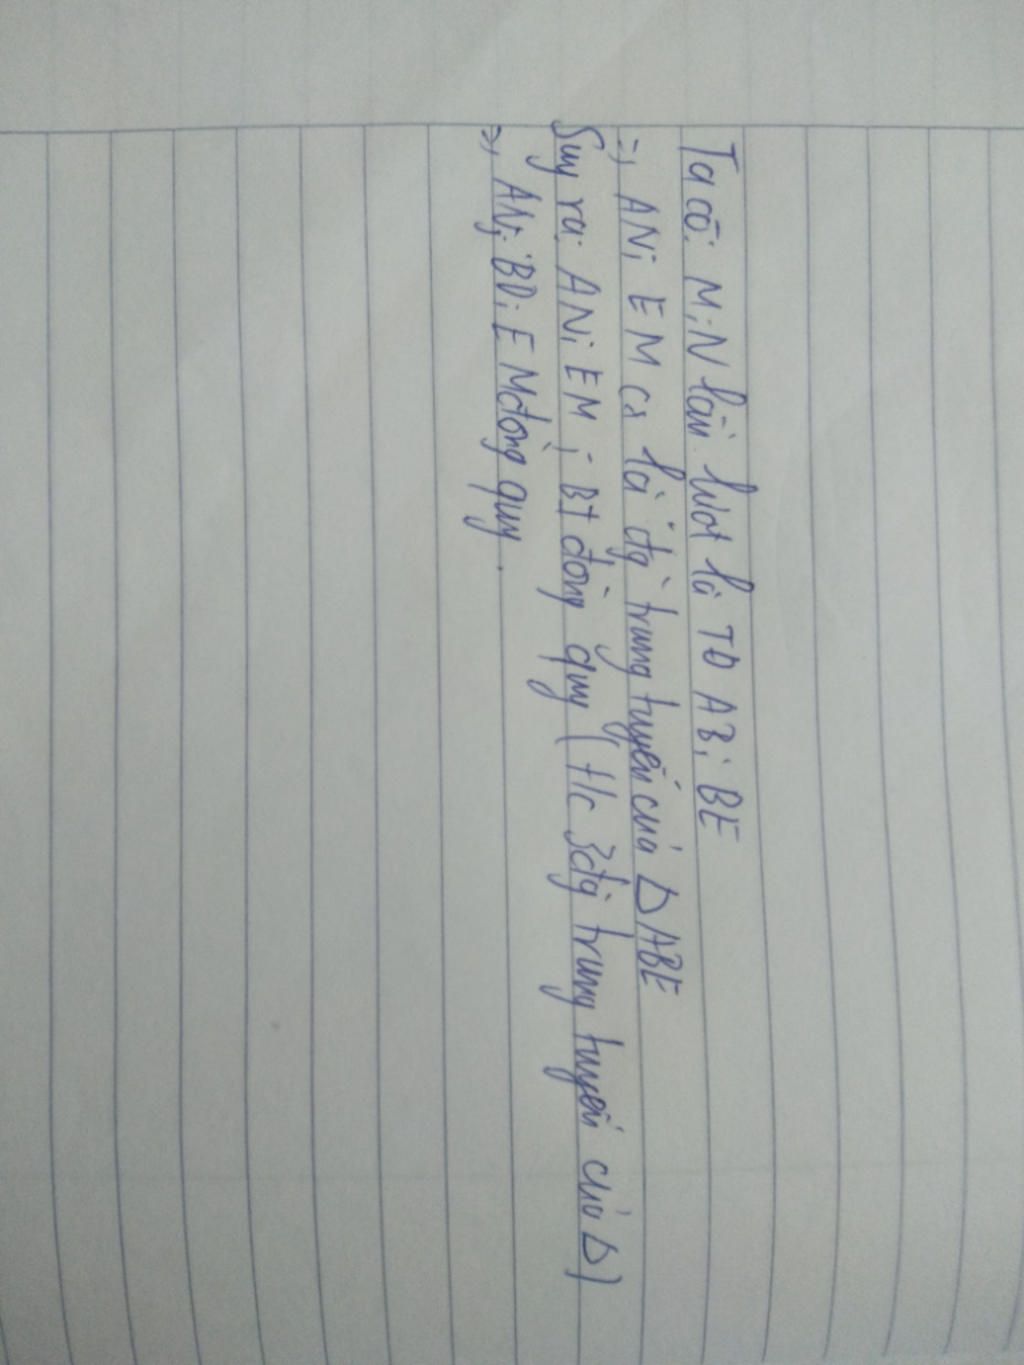 Ta có: M; N lần lượt là TĐ AB; BE
=> AN; EM cx là đg trung tuyến của Δ ABE
Suy ra: AN; EM; BI đồng quy (t/c 3 đg trung tuyến của Δ)
=> AN; BD; EM đồng quy.